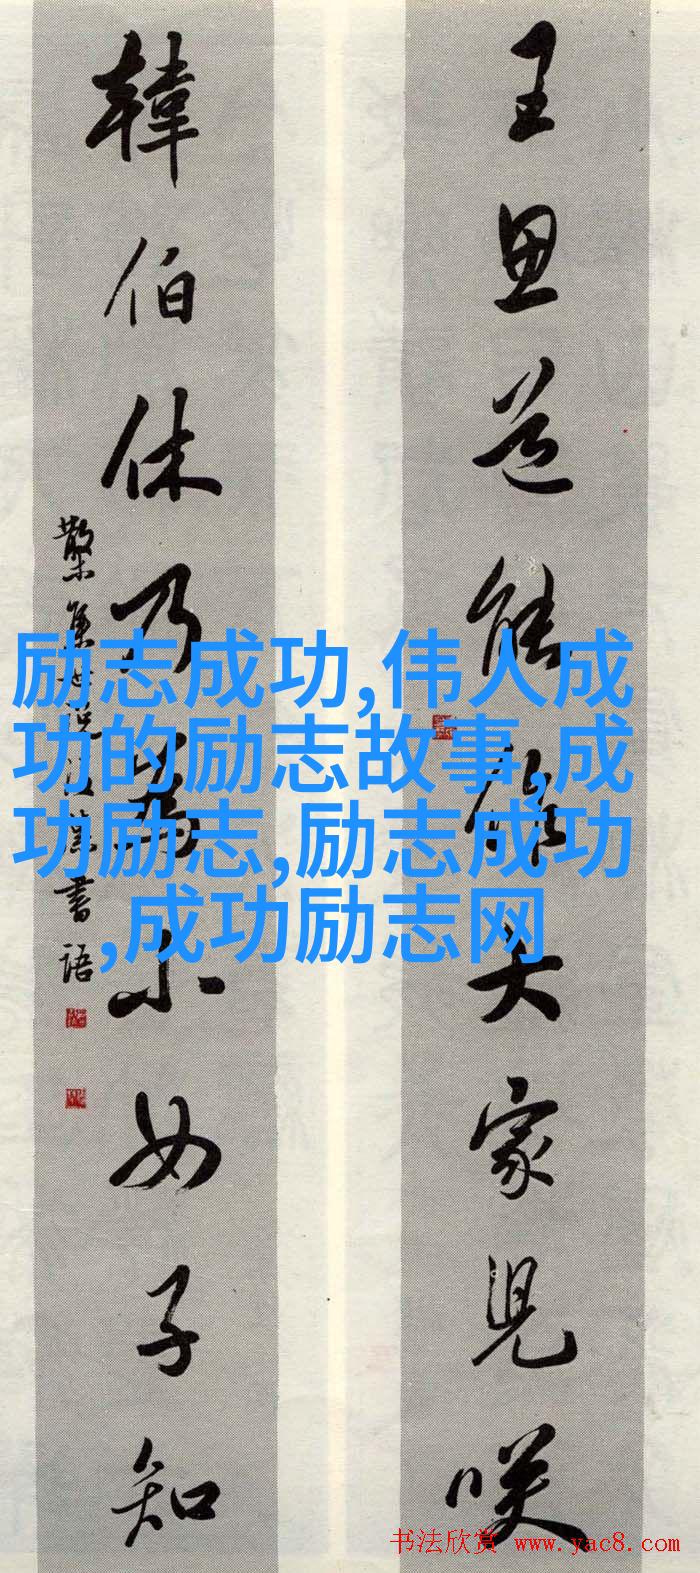 王思道能作大家兒咲
韓伯休乃為小女子知
励志成功,伟人成
功的励志故事,成
功励志,励志成功
,成功励志网
书法欣赏 www.yac8.com